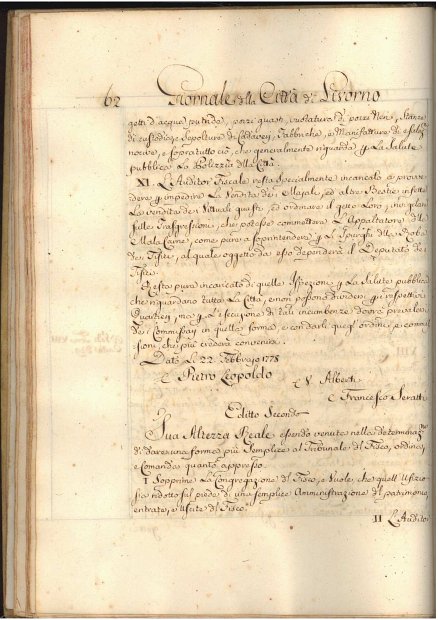 62 Giornale della Città di Livorno
getti d'acque putride, pozzi quasti, vuotatura di pozzi Neri, Stanze
di custodia, e Sepolture di Cadaveri, Fabbriche, e Manifatture d'esalaz.ni
nocive, e sopratutto ciò, che generalmente riguarda p. La Salute
pubblica La Polizzia della Città.
XI. L'Auditor Fiscale resta specialmente incaricato di provve-
dere, p. impedire La Vendita dei Majali, ed altre Bestie infette,
La vendita dei Vituali guasti, ed ordinare il getto Loro,
sulle Trasgressioni, che potesse commettere L'Appaltatore della
Mala Carne, come pure a soprintendere p. gl'Spurghi della Roba
dei Tisici, al quale oggetto da esso dependerà il Deputato dei
Tisici.
Resta pure incaricato di quelle Ispezioni p. La Salute pubblica
che riguardano tutta La Città, e non possono dividersi p. i respettivi
Quartieri, ma p. L'esecuzione di tali incumbenze dovrà prevalersi
dei Commissarj in quella forma, e con darli quegl'ordini, e commis-
sioni, che più crederà convenirsi.
Dato Li 22. Febbrajo 1778
Pietro Leopoldo
V. Alberti
Francesco Seratti
Editto Secondo
Sua Altezza Reale essendo venuta nella determinaz.ne
di dare una forma più Semplice al Tribunale del Fisco, ordina,
e Comanda quanto appresso.
I Sopprime La Congregazione del Fisco, e Vuole, che quell'Ufizio
sia ridotto sul piede di una semplice Amministrazione del patrimonio,
entrate, e Uscite del Fisco.
II L'Auditor